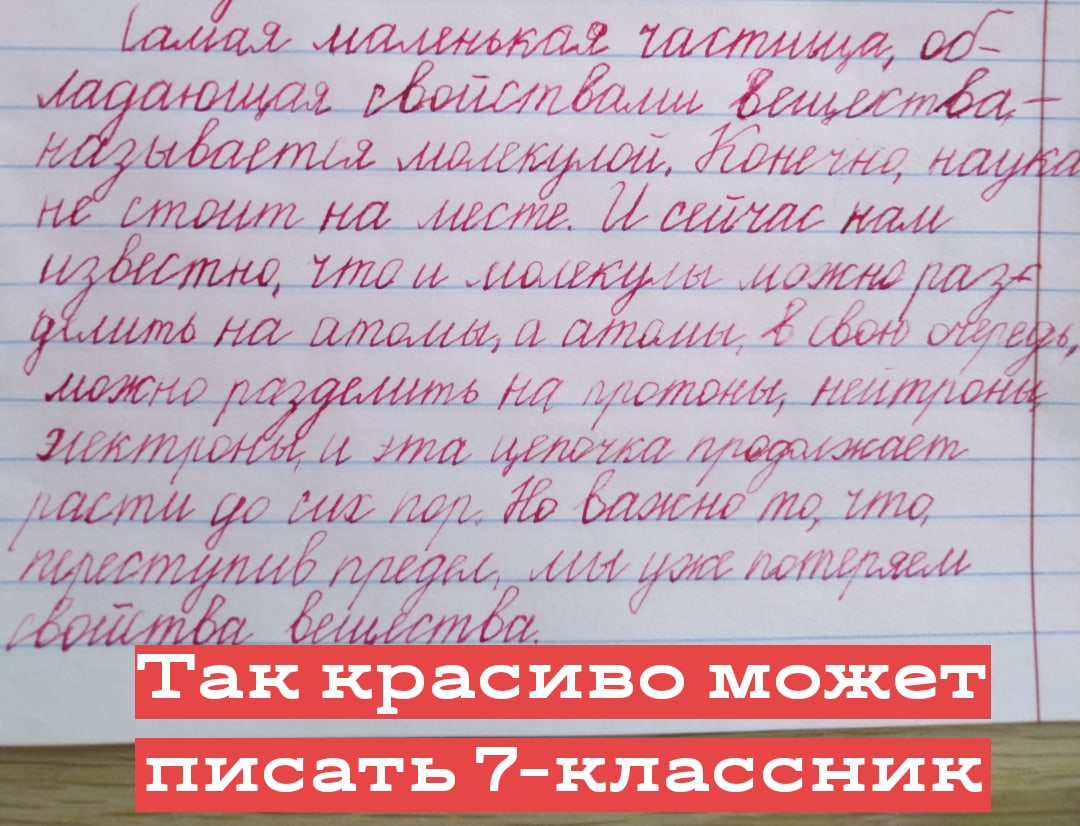 Самая маленькая частица, об-
ладающая свойствами вещества,-
называется молекулой. Конечно, наука
не стоит на месте. И сейчас нам
известно, что и молекулы можно раз-
делить на атомы, а атомы, в свою очередь,
можно разделить на протоны, нейтроны,
электроны, и эта цепочка продолжает
расти до сих пор. Но важно то, что,
переступив предел, мы уже потеряем
свойства вещества.
Так красиво может
писать 7-классник